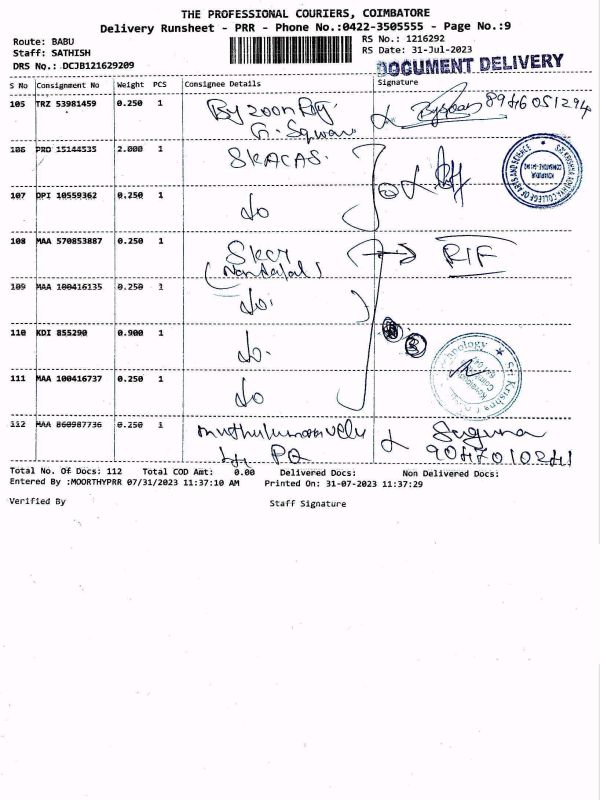 THE PROFESSIONAL COURIERS, COIMBATORE
Delivery Runsheet - PRR - Phone No.:0422-3505555 - Page No.:9
Route: BABU
Staff: SATHISH
DRS No.: DCJB121629209
RS No.: 1216292
RS Date: 31-Jul-2023
DOCUMENT DELIVERY
S No Consignment No Weight PCS Consignee Details Signature
105 TRZ 53981459 0.250 1 8946051294
106 PRO 15144535 2.000 1 SKACAS.
107 DPI 10559362 0.250 1 do
108 MAA 570853887 0.250 1
109 MAA 100416135 0.250 1 do.
110 KDI 855290 0.900 1 do.
111 MAA 100416737 0.250 1 do
112 MAA 860987736 0.250 1 Suguna
Total No. Of Docs: 112 Total COD Amt: 0.00 Delivered Docs: Non Delivered Docs:
Entered By :MOORTHYPRR 07/31/2023 11:37:10 AM Printed On: 31-07-2023 11:37:29
Verified By Staff Signature